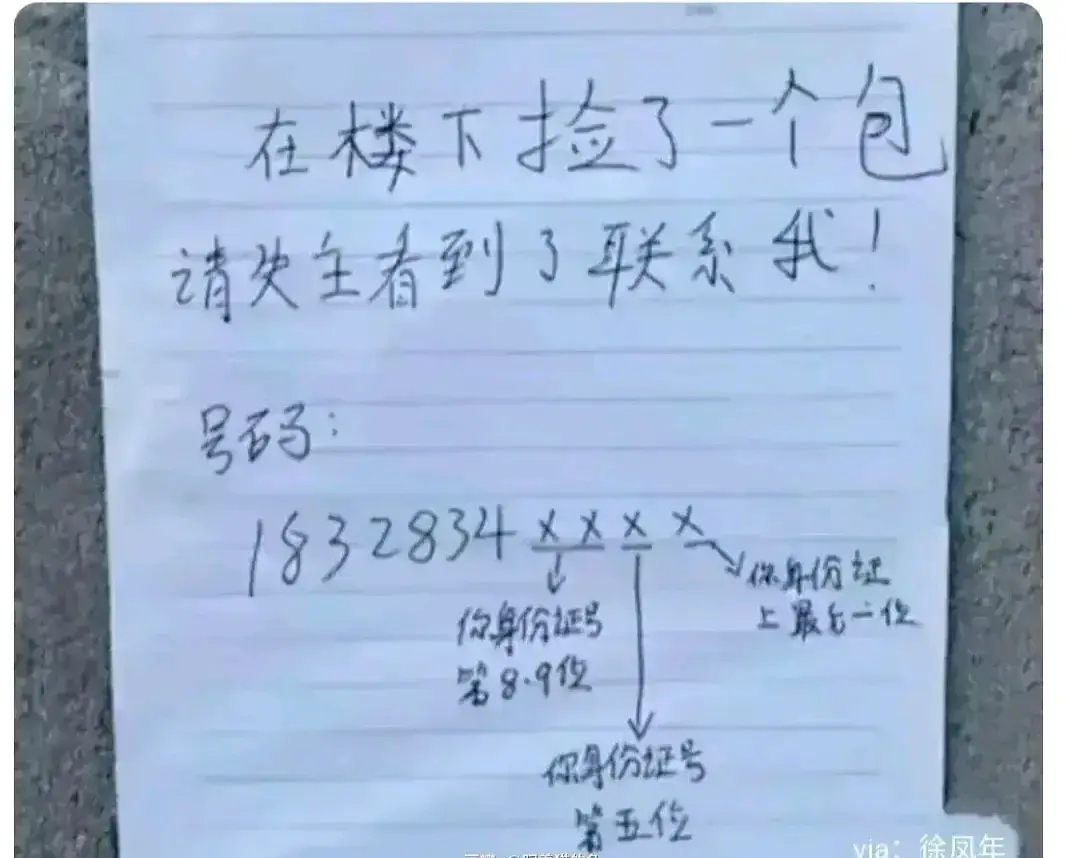 在楼下捡了一个包
请失主看到了联系我!
号码:
1832834××××
你身份证号
第8.9位
你身份证号
第五位
你身份证
上最后一位
via: 徐凤年